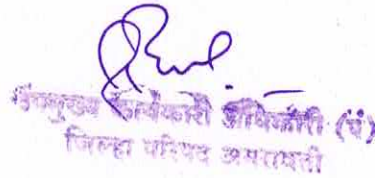 उपमुख्य कार्यकारी अधिकारी (पं)
जिल्हा परिषद अमरावती